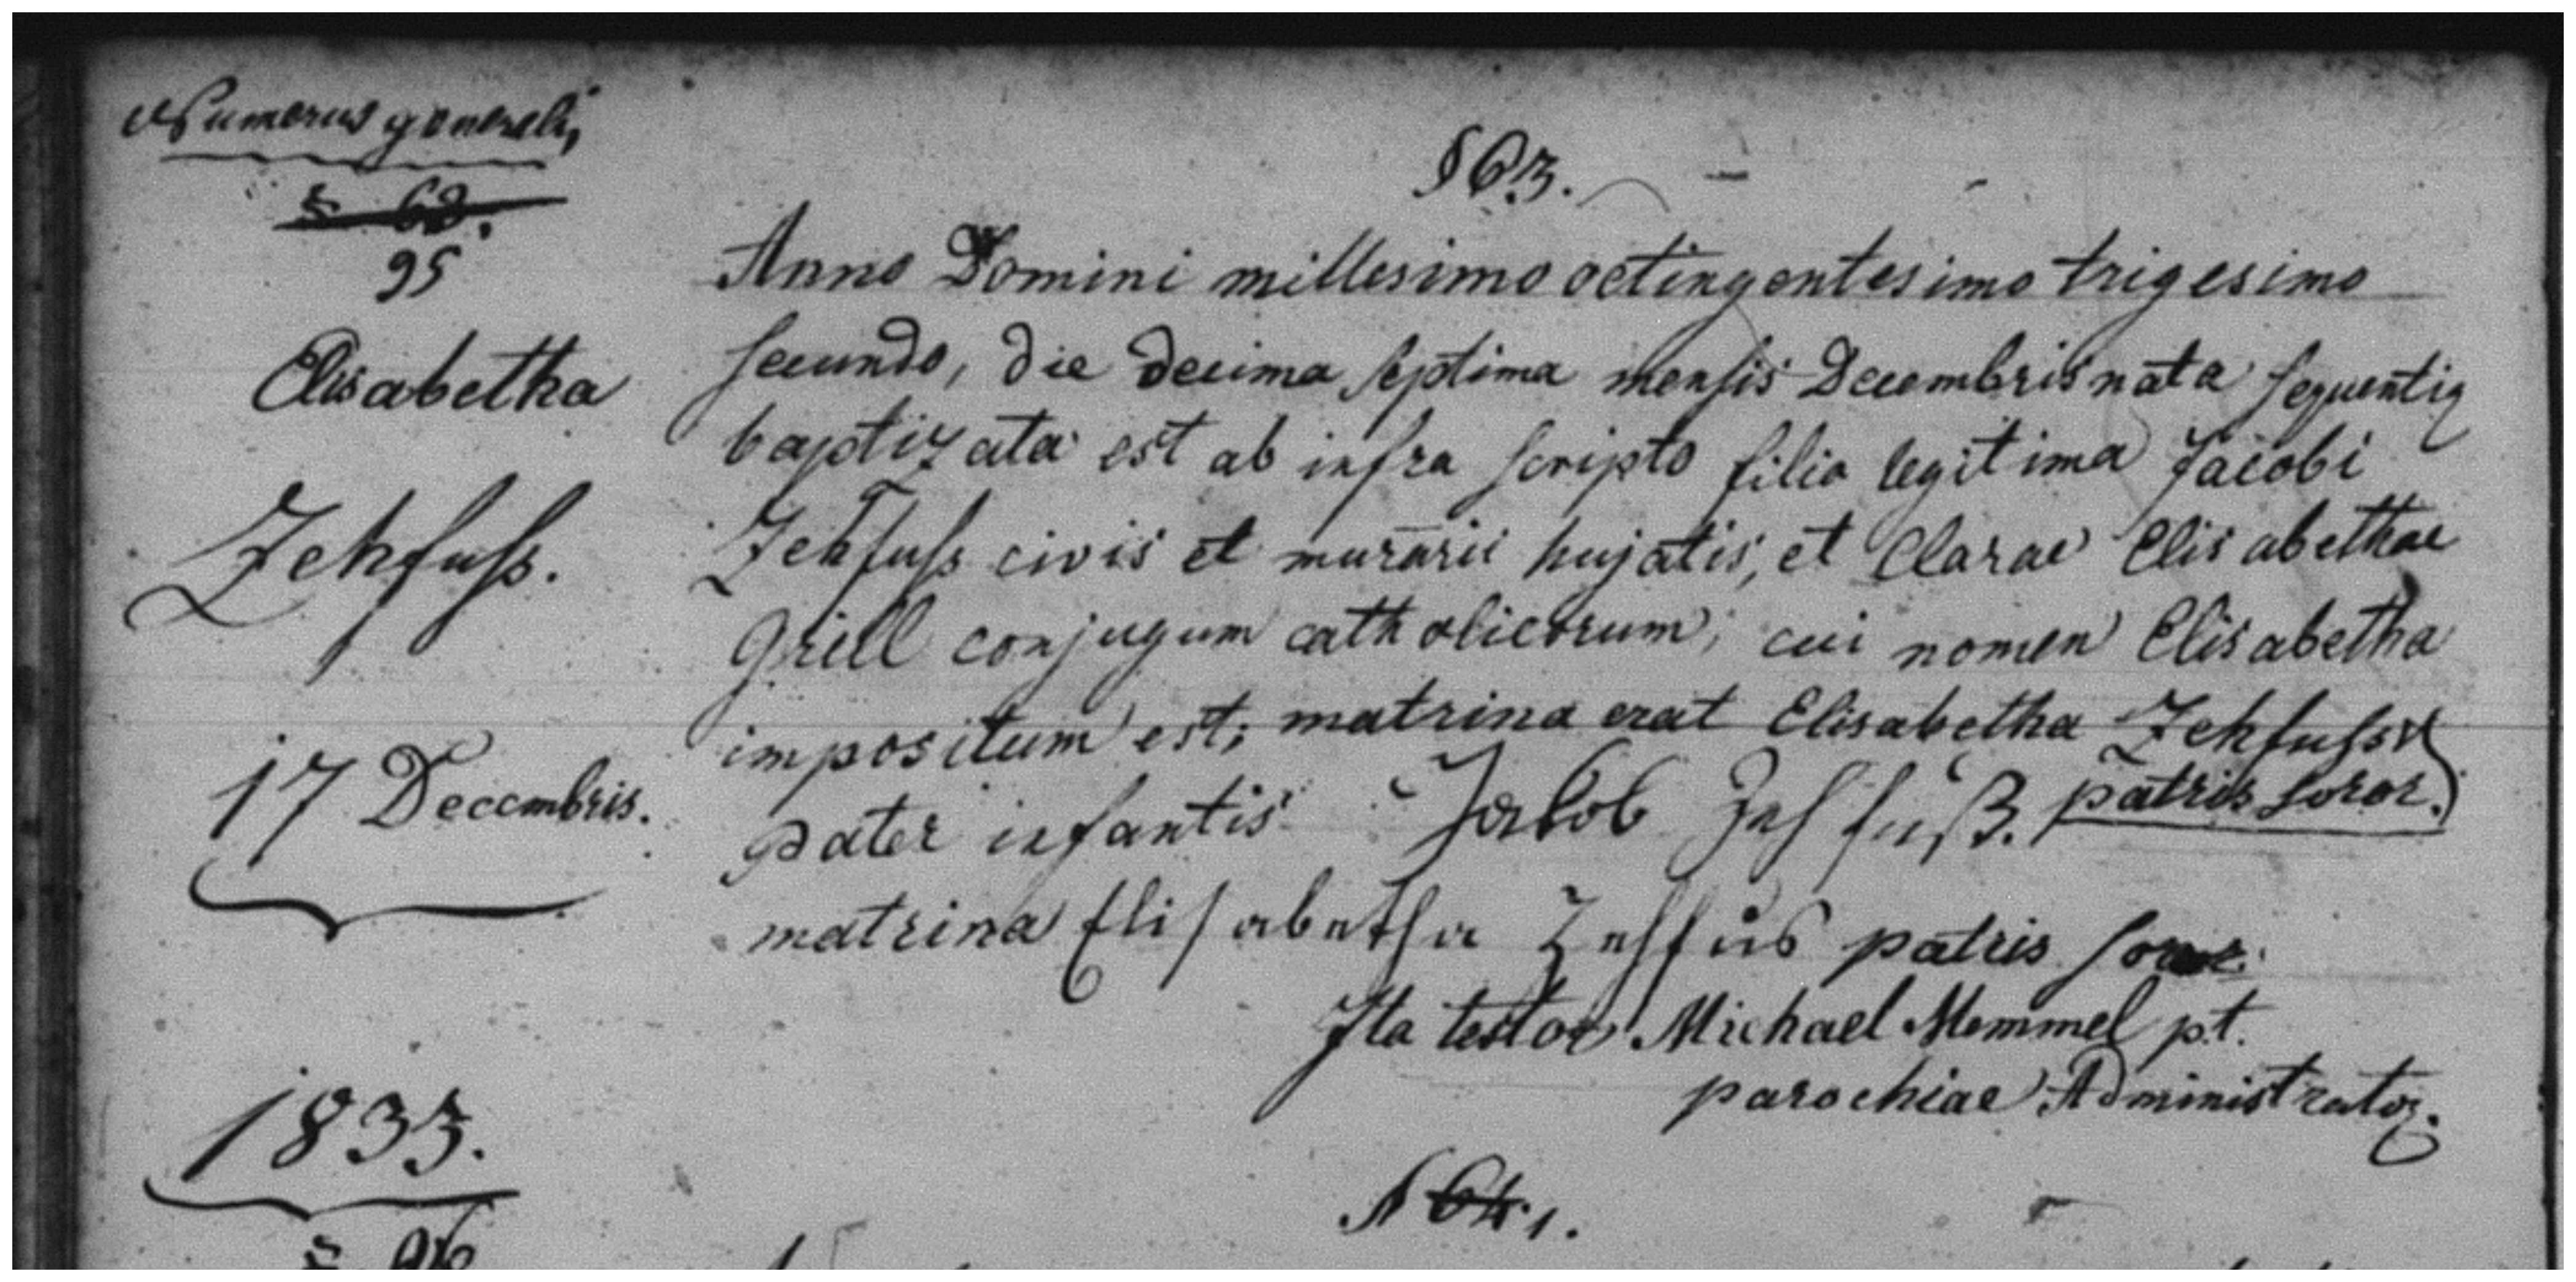 Numerus generalis
§ 62.
95
Elisabetha
Zehfuss.
17 Decembris.
1833.
§ 96
§ 63.
Anno Domini millesimo octingentesimo trigesimo
secundo, die decima septima mensis Decembris nata sequentiq
baptizata est ab infra scripto filia legitima Jacobi
Zehfuss civis et murarii hujatis, et Clarae Elisabethae
Grill conjugum catholicorum; cui nomen Elisabetha
impositum est; matrina erat Elisabetha Zehfuss
patris soror.)
pater infantis Jakob Zehfuß.
matrina Elisabetha Zehfus patris soror.
Ita testor Michael Memmel p.t.
parochiae Administrator.
§ 64. 1.